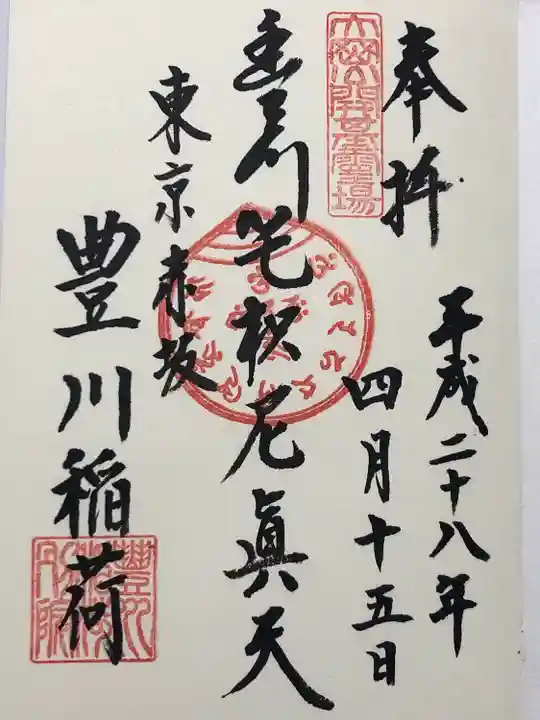 奉拝
平成二十八年
四月十五日
豊川吒枳尼眞天
東京赤坂
豊川稲荷